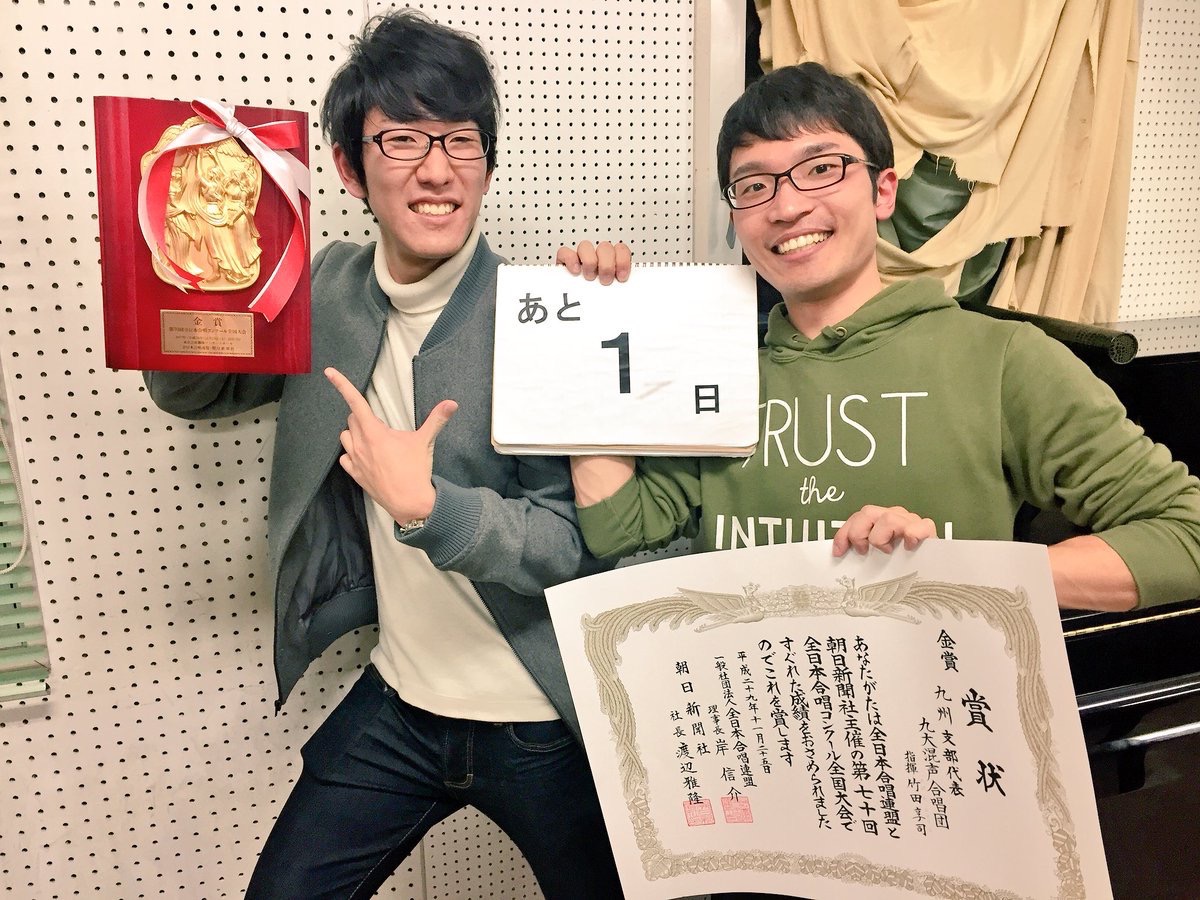 金賞
あと
1
日
TRUST
the
賞状
金賞 九州支部代表
九大混声合唱団
指揮 竹田享司
あなたがたは全日本合唱連盟と
朝日新聞社主催の第七十回
全日本合唱コンクール全国大会で
すぐれた成績をおさめられました
のでこれを賞します
平成二十九年十一月二十五日
一般社団法人全日本合唱連盟
理事長 岸 信介
朝日新聞社
社長 渡辺雅隆